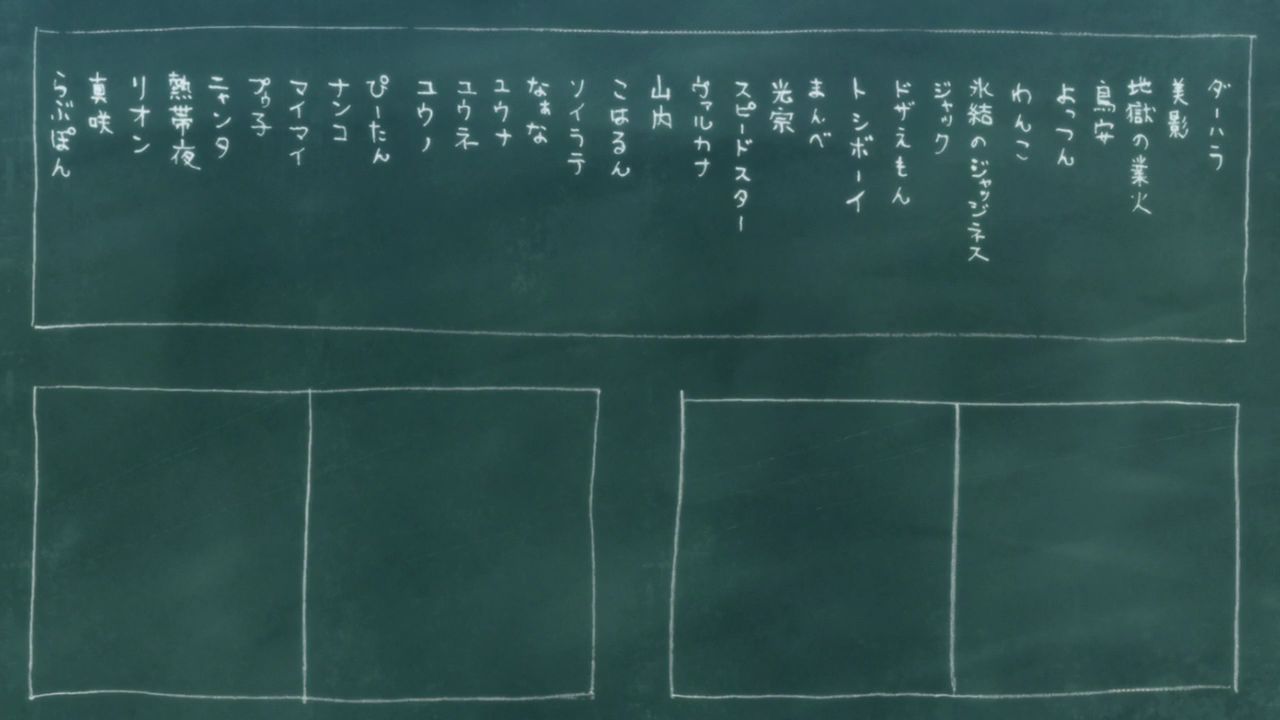 ダーハラ
美影
地獄の業火
鳥安
よっつん
わんこ
氷結のジャッジネス
ジャック
ドザえもん
トシボーイ
まんべ
光宗
スピードスター
ヴァルカナ
山内
こはるん
ソイラテ
なぁな
ユウナ
ユウネ
ユウノ
ぴーたん
ナンコ
マイマイ
プゥ子
ニャンタ
熱帯夜
リオン
真咲
らぶぽん